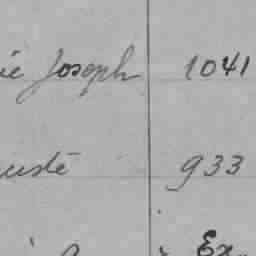 ie Joseph 1041
uste 933
Ex.